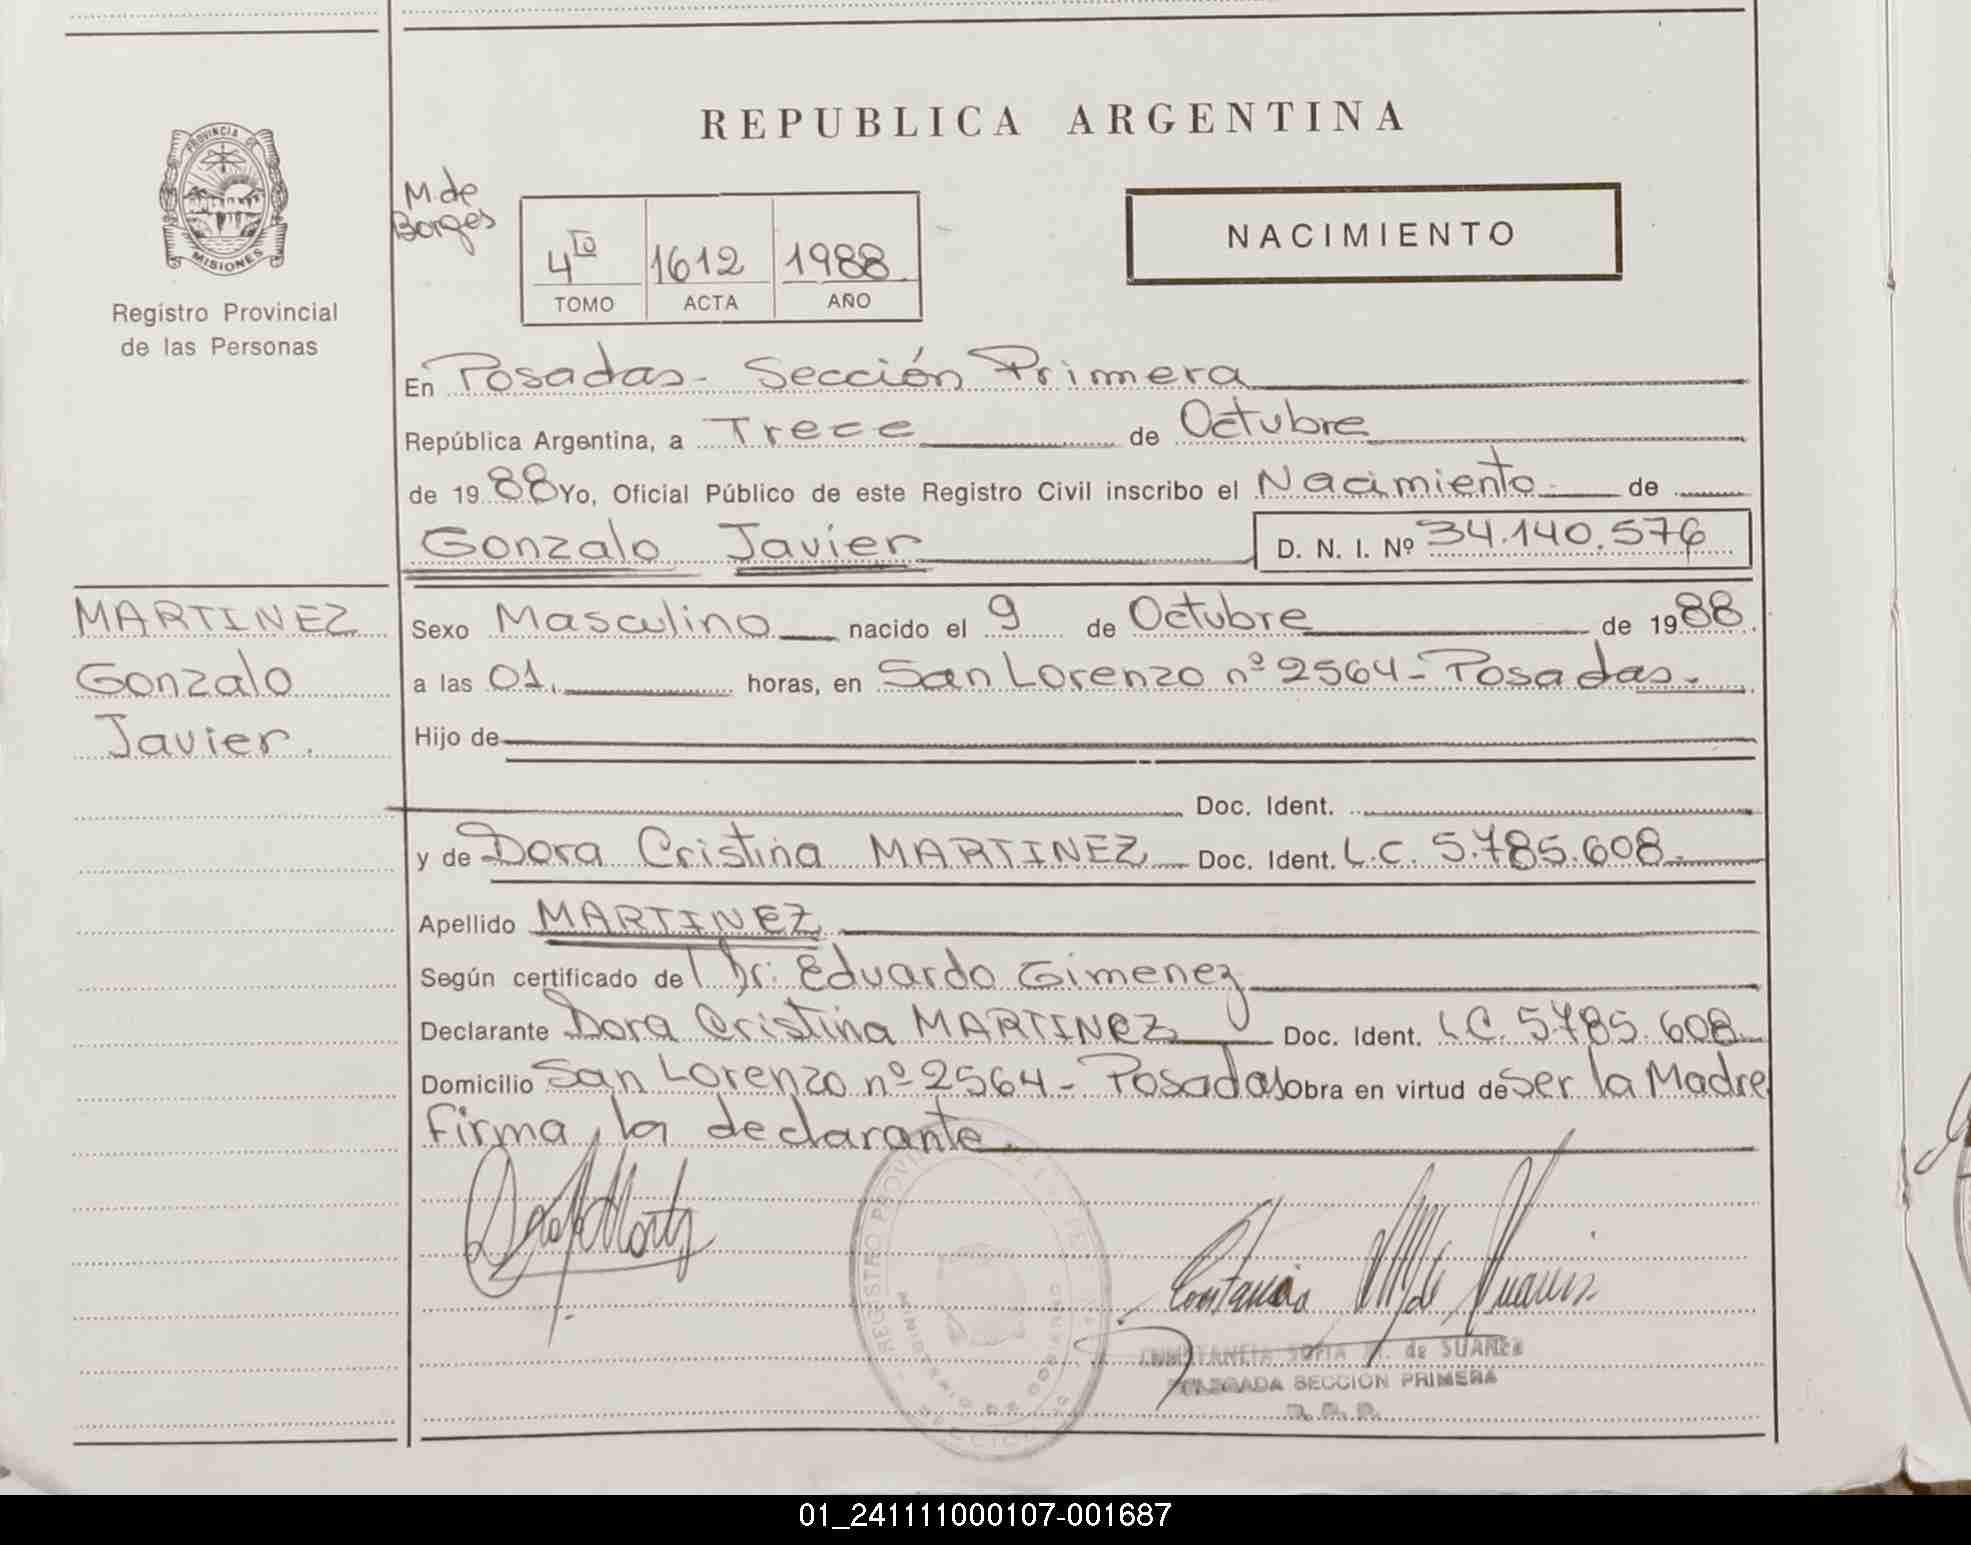 REPUBLICA ARGENTINA
PROVINCIA DE
MISIONES
Registro Provincial
de las Personas
M. de
Borges
4to 1612 1988
TOMO ACTA AÑO
NACIMIENTO
En Posadas - Sección Primera
República Argentina, a Trece de Octubre
de 1988 Yo, Oficial Público de este Registro Civil inscribo el Nacimiento de
Gonzalo Javier D. N. I. Nº 34.140.576
MARTINEZ
Gonzalo
Javier.
Sexo Masculino nacido el 9 de Octubre de 1988
a las 01. horas, en San Lorenzo nº 2564 - Posadas.
Hijo de
Doc. Ident.
y de Dora Cristina MARTINEZ Doc. Ident. L.C. 5.785.608.
Apellido MARTINEZ
Según certificado del Dr: Eduardo Gimenez
Declarante Dora Cristina MARTINEZ Doc. Ident. L.C. 5.785.608.
Domicilio San Lorenzo nº 2564 - Posadas Obra en virtud de ser la Madre
firma la declarante.
REGISTRO PROVINCIAL DE LAS
MINISTERIO DE GOBIERNO
SECCION
Constancia M de Suarez
CONSTANCIA SOFIA M. de SUAREZ
DELEGADA SECCION PRIMERA
R. P. P.
01_241111000107-001687